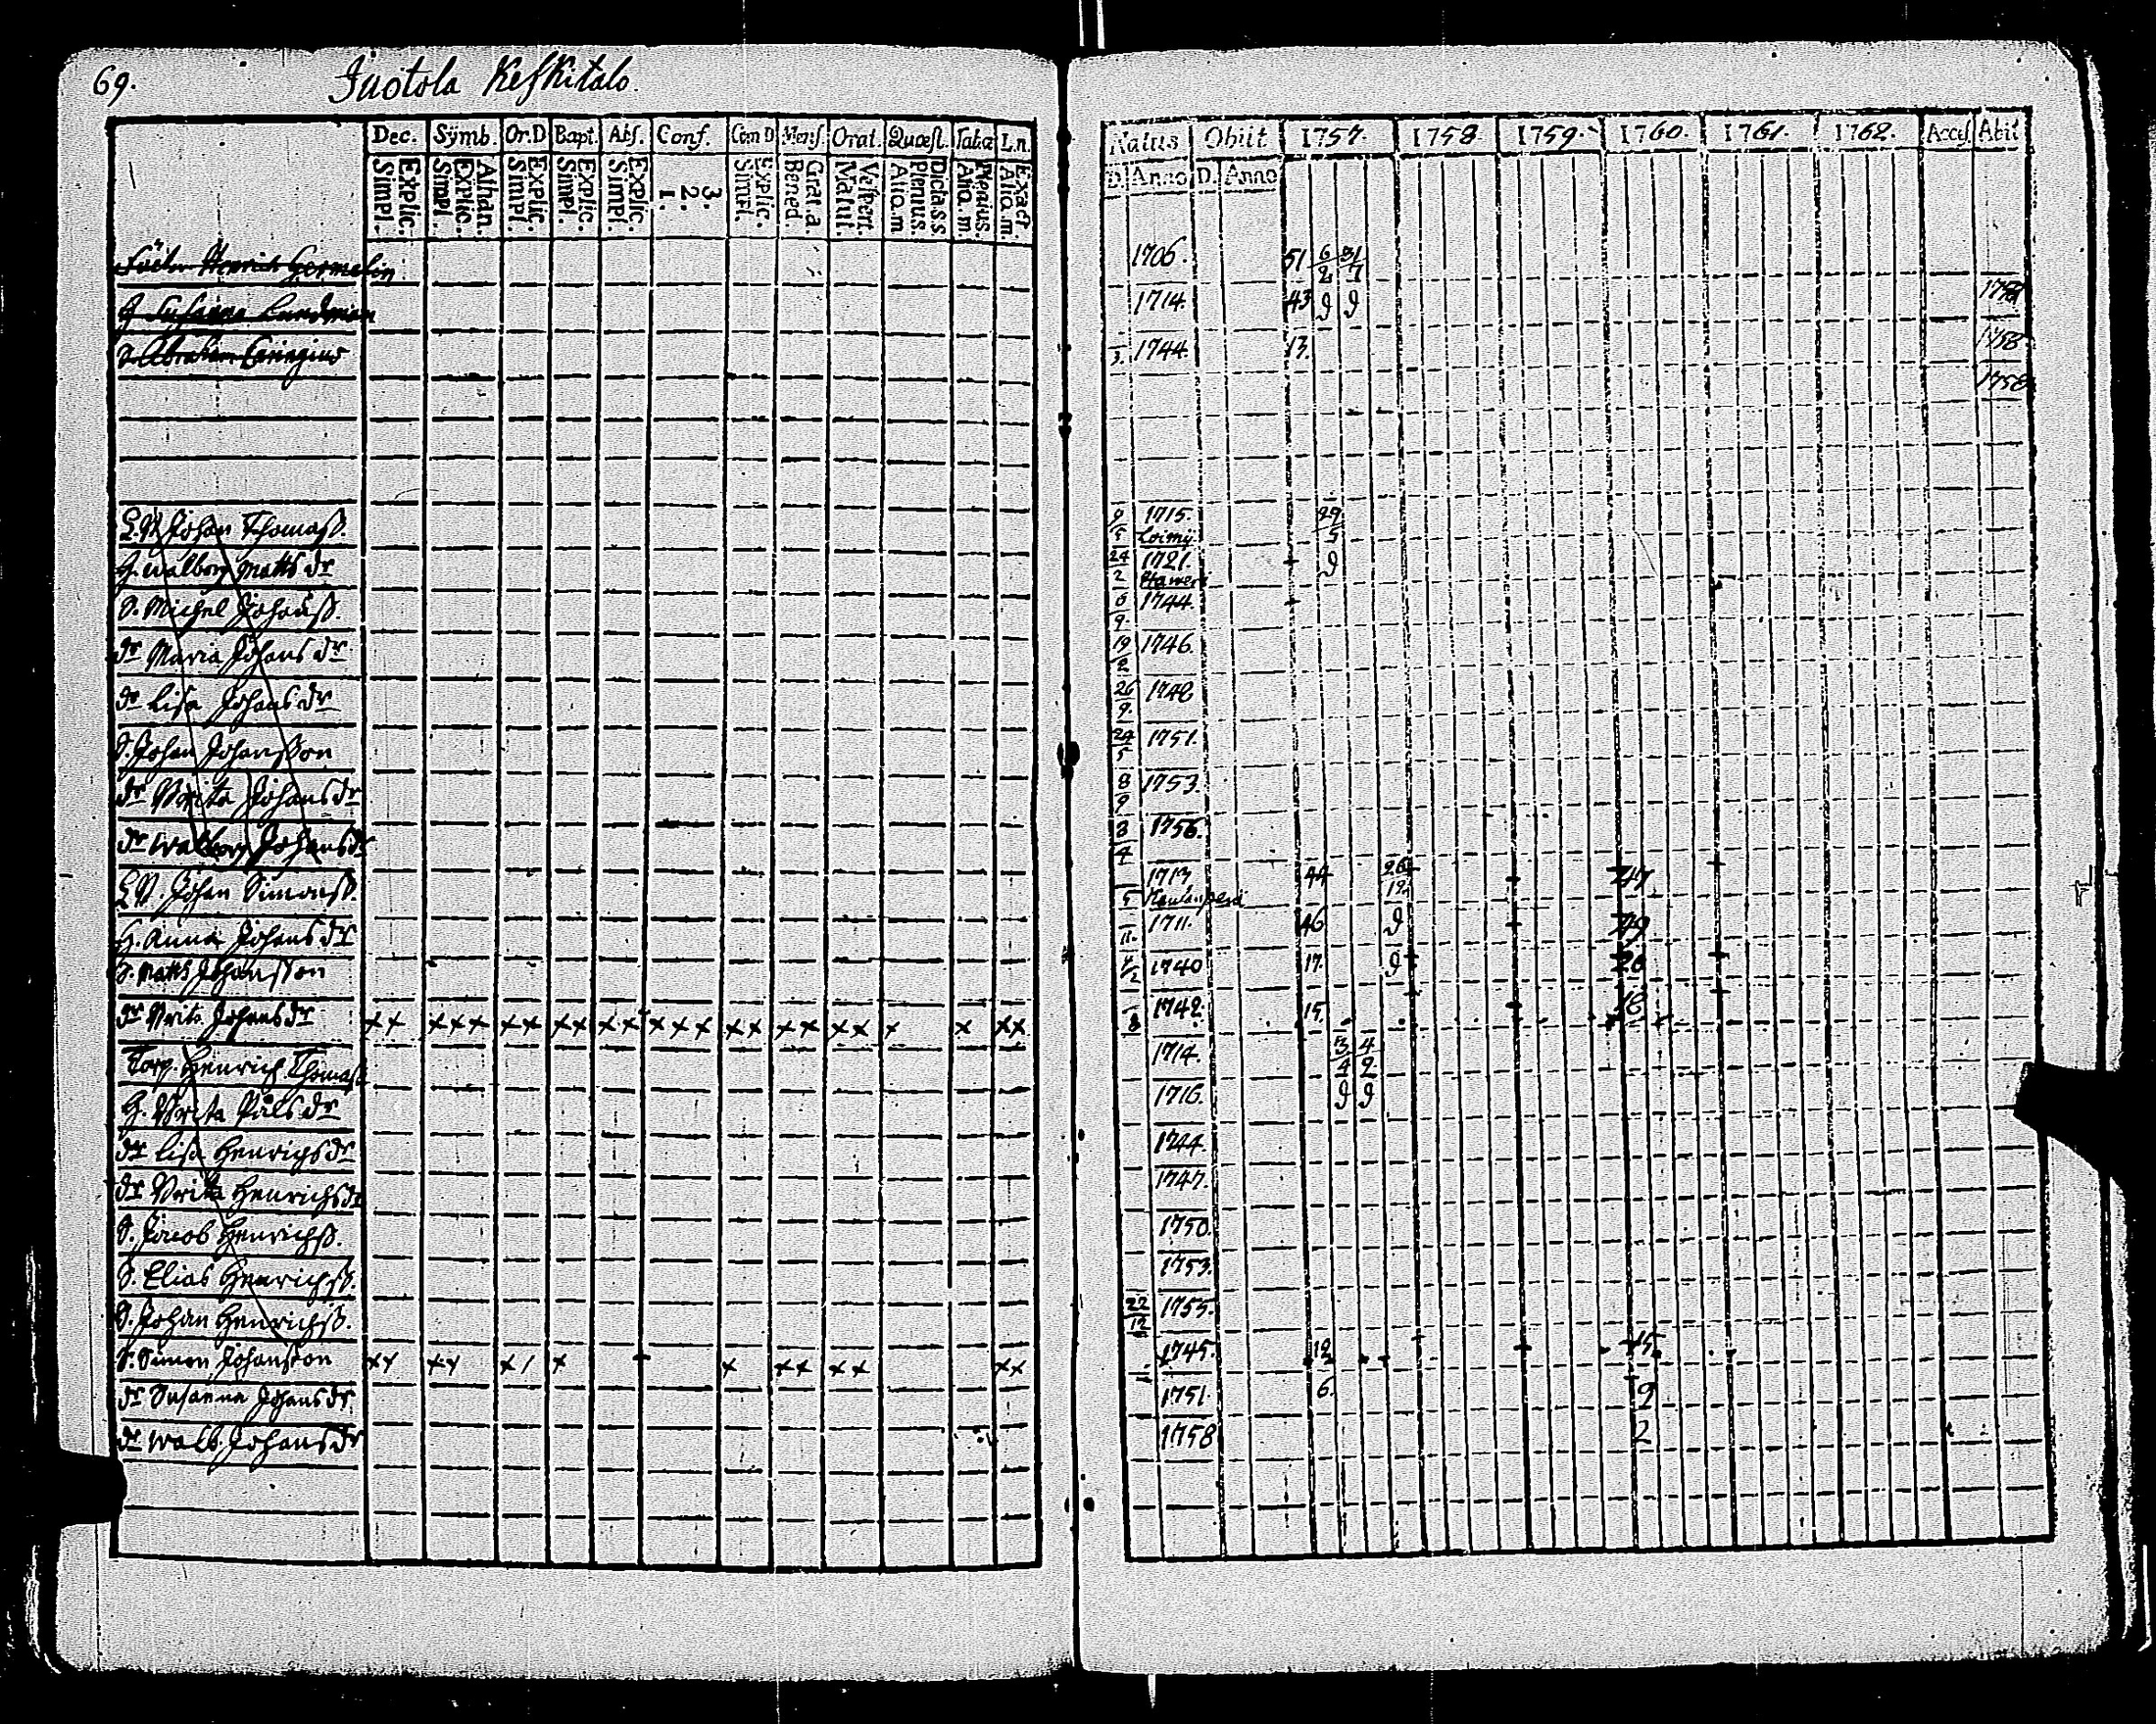 69. Juotola Keskitalo.
Dec. Symb. Or.D Bapt. Abs. Conf. Com D Mens. Orat. Quæst. Tabæ L.n.
Simpl. Explic. Simpl. Explic. Athan. Simpl. Explic. Simpl. Explic. Simpl. Explic. 1. 2. 3. Simpl. Explic. Bened. Grat. a. Matut. Vespert. Aliq.m Plenius. Dicta s.s Aliq.m Plenius. Aliq.m. Exact.
Natus Obiit 1757. 1758 1759. 1760. 1761. 1762. Access Abiit
D. Anno D. Anno
Henrich Germelin 1706. 51 6/2 31/7
H Susanna Lundman 1714. 43 9 9 1758
S. Abraham 3. 1744. 13. 1758
1758
Johan Thomass. 9/5 1715. Loimij 29/5
H. Walborg Matts dr 24/2 1721. 9
S. Michel Johanss. 6/9. 1744.
dr Maria Johans dr 19/2 1746.
dr Lisa Johans dr 26/9. 1748
S. Johan Johansson 24/5 1751.
dr Brita Johans dr 8/9 1753.
dr Walborg Johans dr 3/4 1756.
Johan Simonss. 5 1713 44 26/12 47
H. Anna Johans dr 11. 1711. 46 9 49
S. Matts Johansson 1740 17. 9 20
dr Brita Johans dr x x x x x x x x x x x x x x x x x x x x x x x x x 8 1742. 15. 18
Torp. Henrich Thomass 1714. 3/4 4/2
H. Brita Påls dr 1716. 9 9
dr Lisa Henrichs dr 1744.
dr Brita Henrichs dr 1747.
S. Jacob Henrichss. 1750.
S. Elias Henrichss. 1753.
S. Johan Henrichss. 22/12 1755.
S. Simon Johansson x x x x x / x x x x x x x x 1745. 12 15.
dr Susanna Johans dr 1751. 6. 9
dr Walb. Johans dr 1758 2